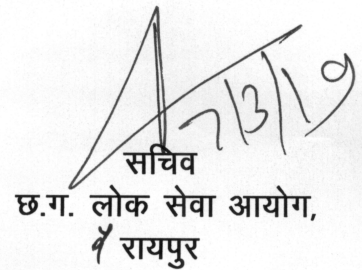 7/3/19
सचिव
छ.ग. लोक सेवा आयोग,
रायपुर